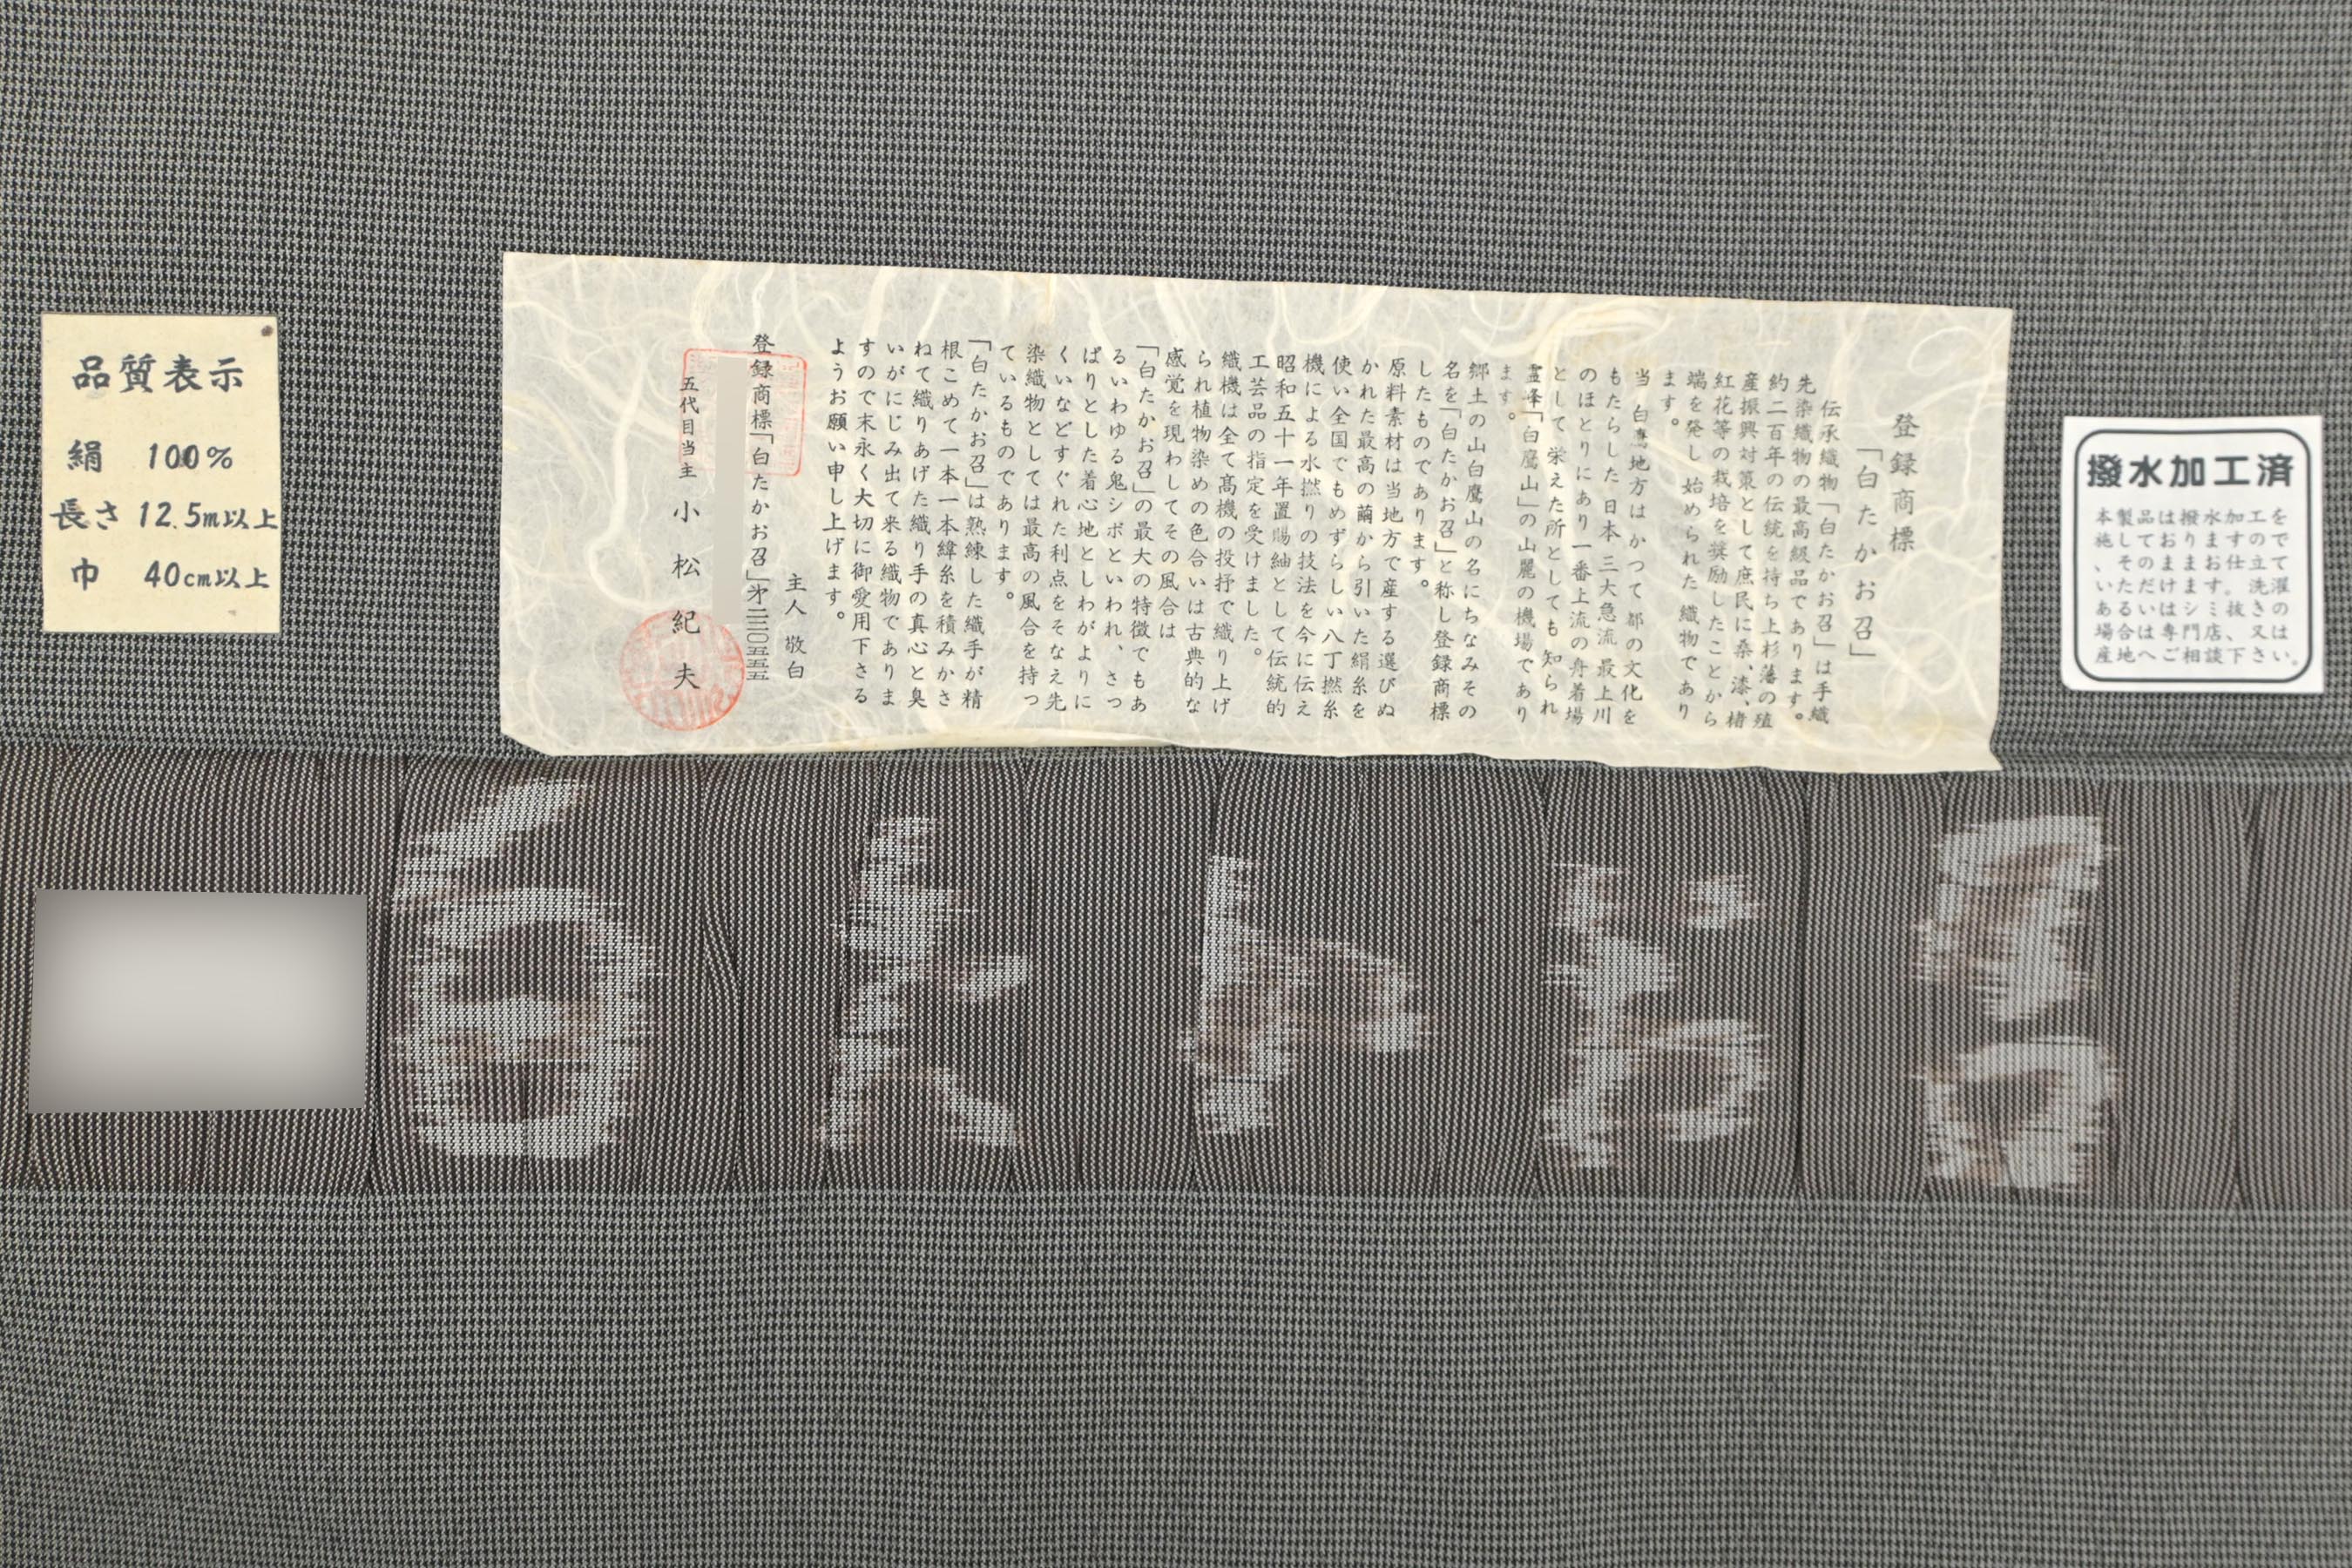 品質表示
絹 100%
長さ 12.5m以上
巾 40cm以上
登録商標
「白たかお召」
伝承織物「白たかお召」は手織
先染織物の最高級品であります。
約二百年の伝統を持ち上杉藩の殖
産振興対策として庶民に桑、漆、楮
紅花等の栽培を奨励したことから
端を発し始められた織物であり
ます。
当白鷹地方はかつて都の文化を
もたらした日本三大急流最上川
のほとりにあり一番上流の舟着場
として栄えた所としても知られ
霊峰「白鷹山」の山麓の機場であり
ます。
郷土の山白鷹山の名にちなみその
名を「白たかお召」と称し登録商標
したものであります。
原料素材は当地方で産する選びぬ
かれた最高の繭から引いた絹糸を
使い全国でもめずらしい八丁撚糸
機による水撚りの技法を今に伝え
昭和五十一年置賜紬として伝統的
工芸品の指定を受けました。
織機は全て高機の投抒で織り上げ
られ植物染めの色合いは古典的な
感覚を現わしてその風合は
「白たかお召」の最大の特徴でもあ
るいわゆる鬼シボといわれ、さっ
ぱりとした着心地としわがよりに
くいなどすぐれた利点をそなえ先
染織物としては最高の風合を持っ
ているものであります。
「白たかお召」は熟練した織手が精
根こめて一本一本緯糸を積みかさ
ねて織りあげた織り手の真心と臭
いがにじみ出て来る織物でありま
すので末永く大切に御愛用下さる
ようお願い申し上げます。
主人 敬白
登録商標「白たかお召」
五代目当主 小松紀夫
撥水加工済
本製品は撥水加工を
施しておりますので
、そのままお仕立て
いただけます。洗濯
あるいはシミ抜きの
場合は専門店、又は
産地へご相談下さい。
白たかお召